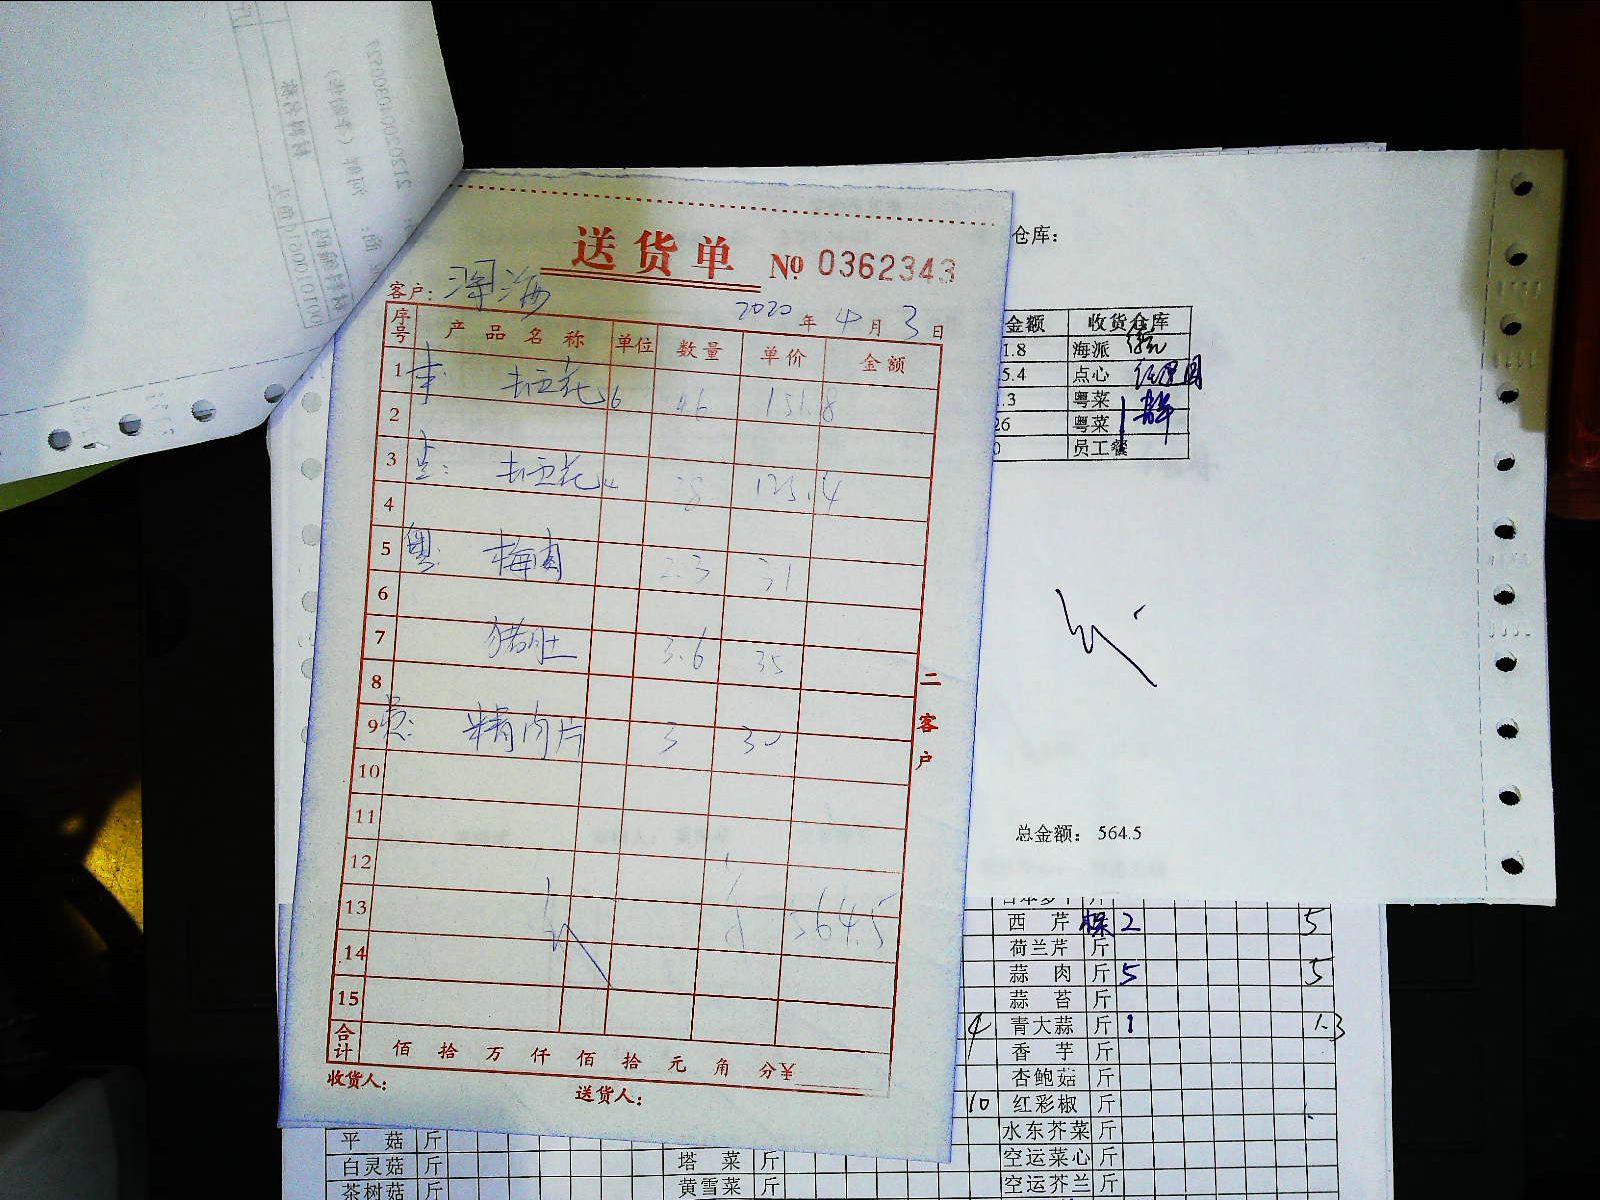 送货单 № 0362343
客户:
2020 年 4 月 3 日
序号 产品名称 单位 数量 单价 金额
1 151.8
2
3 125.4
4
5 粤: 梅肉 2.3 31
6
7 猪肚 3.6 35
8
9 精肉片 3 30
10
11
12
13 564.5
14
15
合计 佰 拾 万 仟 佰 拾 元 角 分 ¥
收货人: 送货人:
二客户
仓库:
金额 收货仓库
1.8 海派
5.4 点心
.3 粤菜
26 粤菜
0 员工餐
总金额: 564.5
西芹 棵 2 5
荷兰芹 斤
蒜肉 斤 5 5
蒜苔 斤
4 青大蒜 斤 1 1.3
香芋 斤
杏鲍菇 斤
10 红彩椒 斤
水东芥菜 斤
空运菜心 斤
空运芥兰 斤
平菇 斤
白灵菇 斤
茶树菇 斤
塔菜 斤
黄雪菜 斤